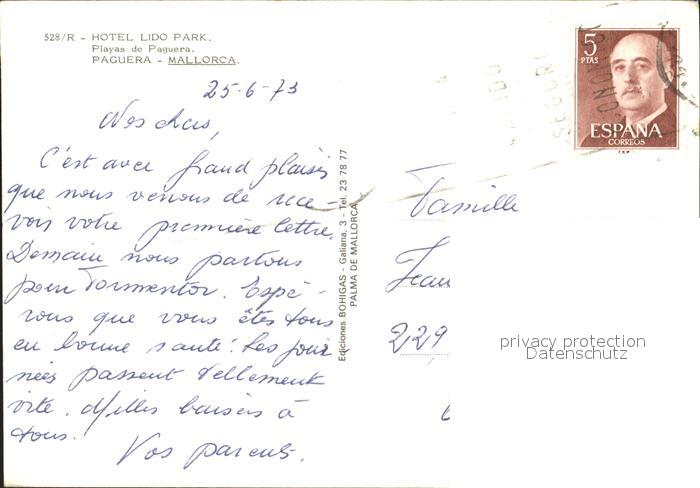 528/R - HOTEL LIDO PARK.
Playas de Paguera.
PAGUERA - MALLORCA.
25-6-73
Nos chers,
C'est avec grand plaisir
que nous venons de rece-
voir votre première lettre.
Demain nous partons
pour Formentor. Espé-
rons que vous êtes tous
en bonne santé. Les jour
nées passent tellement
vite. Milles baisers à
tous.
Vos parents.
Ediciones BOHIGAS - Galiana, 3 - Tel. 23 78 77
PALMA DE MALLORCA
5
PTAS
ESPAÑA
CORREOS
Famille
Jean
229
privacy protection
Datenschutz